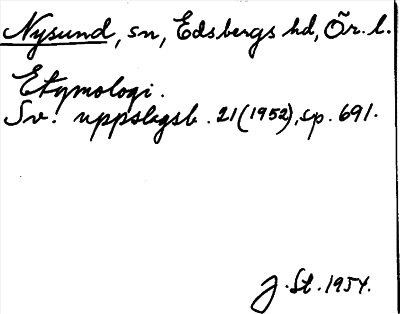 Nysund, sn, Edsbergs hd, Ör. l.
Etymologi.
Sv. uppslagsb. 21(1952), sp. 691.
J. St. 1954.